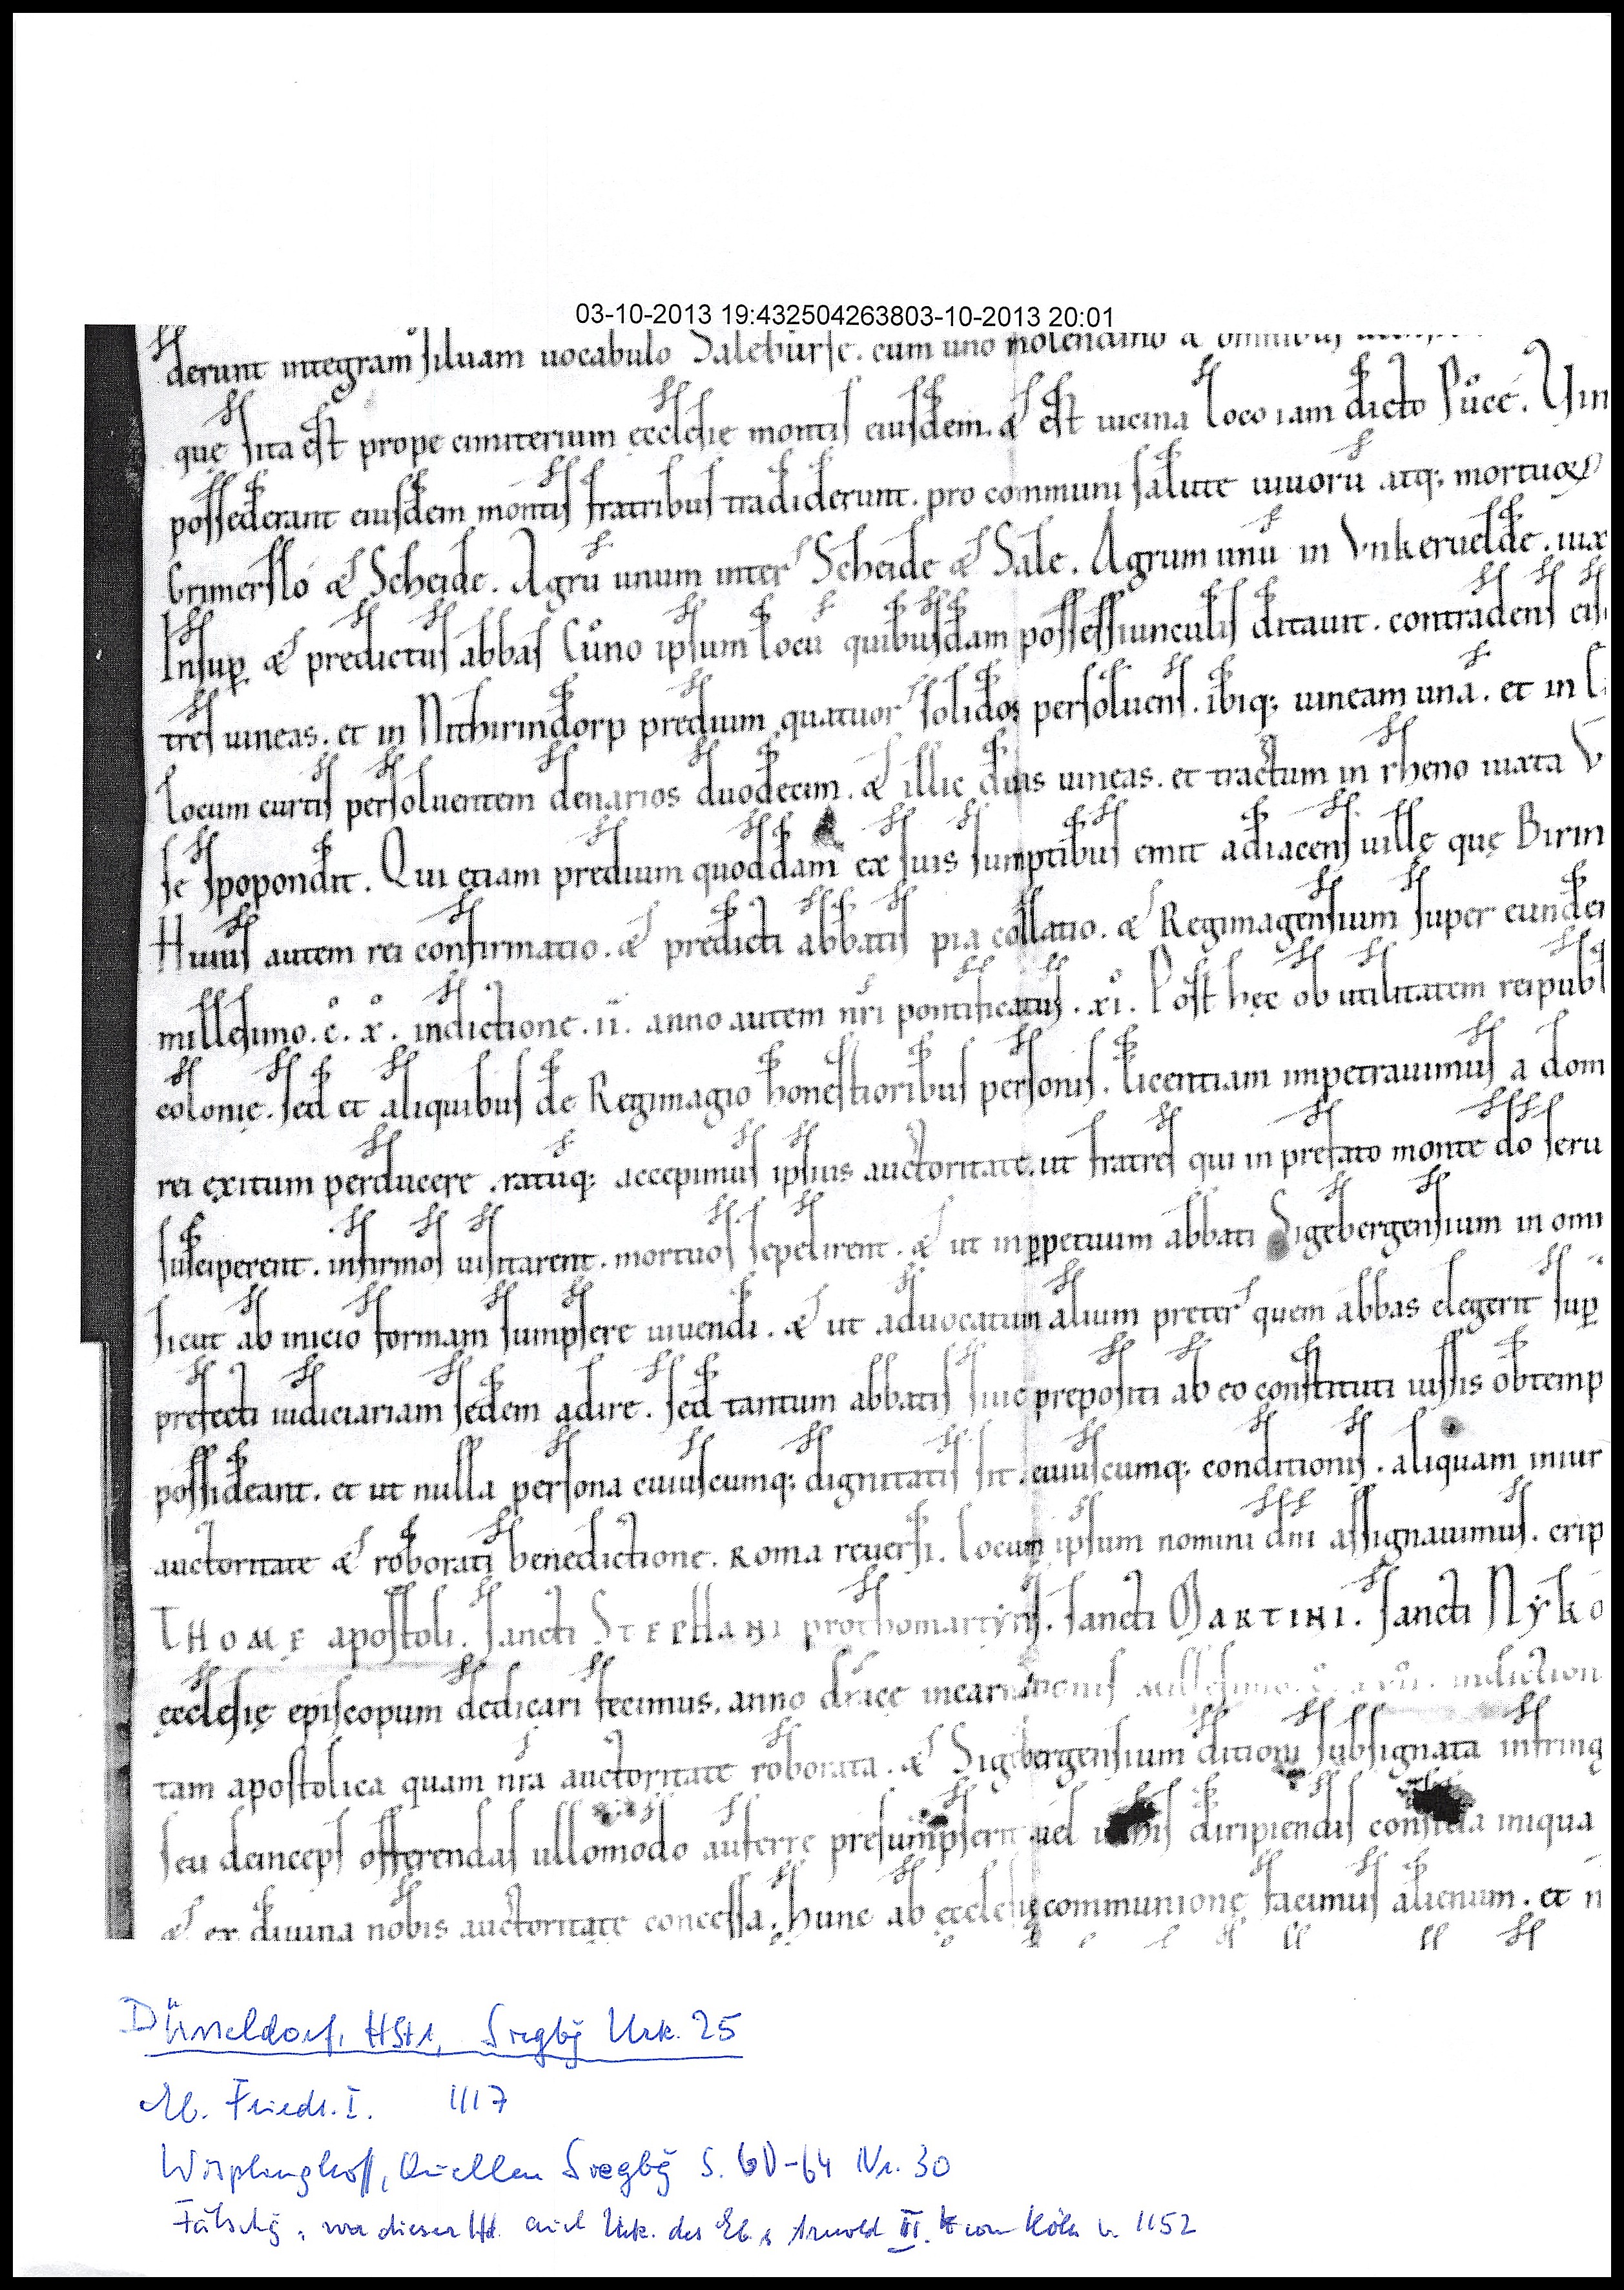 03-10-2013 19:432504263803-10-2013 20:01
derunt integram siluam uocabulo Saleburse. cum uno molendino &
quę sita est prope cimiterium ęcclesię montis eiusdem. & est uicina loco iam dicto Půcé. Vin
possederant eiusdem montis fratribus tradiderunt. pro communi salute uiuorū atq; mortuoꝝ
Grimerslo & Scheide. Agrū unum inter Scheide & Sale. Agrum unū in Vnkeruelde. iux
Insuꝑ & predictus abbas Cůno ipsum locū quibusdam possessiunculis ditauit. contradens eis
tres uineas. et in Nithirindorp predium quatuor solidos persoluens. ibiq; uineam unā. et in
locum curtis persoluentem denarios duodecim. & illic duas uineas. et tractum in rheno iuxta V
se spopondit. Qui etiam predium quoddam ex suis sumptibus emit adiacens uillę quę Birin
Huius autem rei confirmatio. & predicti abbatis pia collatio. & Regimagensium super eunde
millesimo. c̊. x̊. indictione. ii. anno autem nr̄i pontificatus. xi. Post hęc ob utilitatem reipubl
colonię. sed et aliquibus de Regimagio honestioribus personis. licentiam impetrauimus a dom
rei exitum perducere. ratūq; accepimus ipsius auctoritate. ut fratres qui in prefato monte do seru
susciperent. infirmos uisitarent. mortuos sepelirent. & ut inꝑpetuum abbati Sigebergensium in omi
sicut ab inicio formam sumpsere uiuendi. & ut aduocatum alium preter quem abbas elegerit suꝑ
prefecti iudiciariam sedem adire. sed tantum abbatis siue prepositi ab eo constituti iussis obtemp
possideant. et ut nulla persona cuiuscumq; dignitatis sit. cuiuscumq; conditionis. aliquam iniur
auctoritate & roborati benedictione. Roma reuersi. locum ipsum nomini dn̄i assignauimus. erip
THOME apostoli. Sancti STEPHANI prothomartyris. Sancti MARTINI. Sancti Nyko
ęcclesię episcopum dedicari fecimus. anno dn̄icę incarnationis millesimo. c̊. indiction
tam apostolica quam nr̄a auctoritate roborata. & Sigebergensium ditioni subsignata infring
seu deinceps offerendas ullomodo auferre presumpserit uel diripiendis consilia iniqua
& ex diuina nobis auctoritate concessa. hunc ab ęcclesię communione facimus alienum. et n
Düsseldorf, HStA, Siegbg Urk. 25
Eb. Friedr. I. 1117
Wisplinghoff, Quellen Siegbg S. 60-64 Nr. 30
Fälschg, von dieser Hd. auch Urk. des Eb.s Arnold II. von Köln v. 1152